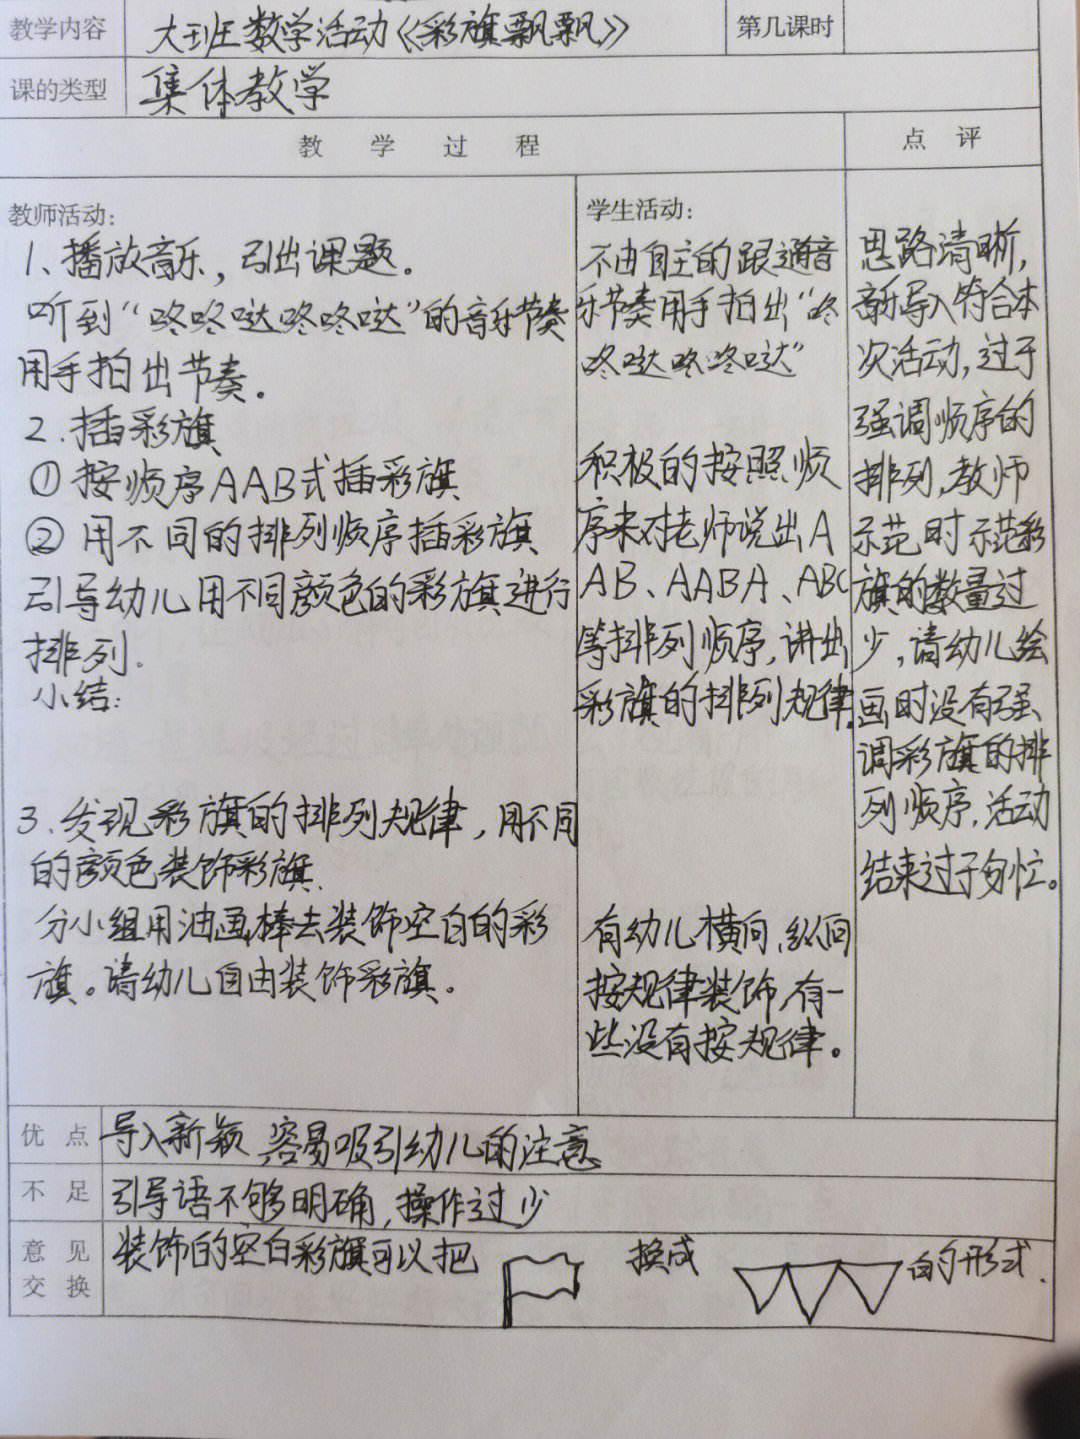 教学内容 大班数学活动《彩旗飘飘》 第几课时
课的类型 集体教学
教 学 过 程 点 评
教师活动:
1、播放音乐,引出课题。
听到“咚咚哒咚咚哒”的音乐节奏
用手拍出节奏。
2.插彩旗
①按顺序AAB式插彩旗
②用不同的排列顺序插彩旗
引导幼儿用不同颜色的彩旗进行
排列.
小结:
3.发现彩旗的排列规律,用不同
的颜色装饰彩旗.
分小组用油画棒去装饰空白的彩
旗。请幼儿自由装饰彩旗。
学生活动:
不由自主的跟随音
乐节奏用手拍出“咚
咚哒咚咚哒”
积极的按照顺
序来对老师说出A
AB、AABA、ABC
等排列顺序,讲出
彩旗的排列规律.
有幼儿横向、纵向
按规律装饰,有一
些没有按规律。
思路清晰,
音乐导入符合本
次活动,过于
强调顺序的
排列,教师
示范时示范彩
旗的数量过
少,请幼儿绘
画时没有强
调彩旗的排
列顺序,活动
结束过于匆忙。
优 点 导入新颖 容易吸引幼儿的注意
不 足 引导语不够明确,操作过少
意 见
交 换
装饰的空白彩旗可以把 换成 的形式.